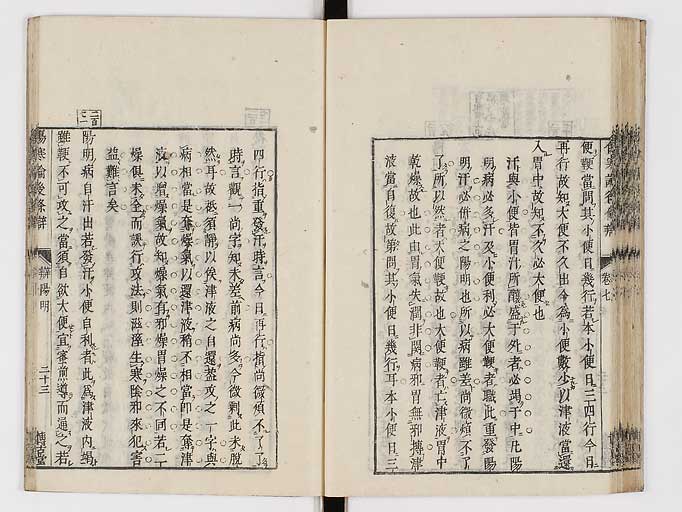 便鞕當問其小便日幾行若本小便日三四行今日
再行故知大便不久出今為小便數少以津液當還
入胃中故知不久必大便也
汗與小便皆胃汁所釀盛于外者必竭于中凡陽
明病必多汗及小便利必大便鞕者職此重發陽
明汗必併病之陽明也所以病雖差尚微煩不了
了所以然者大便鞕故也大便鞕者亡津液胃中
乾燥故也此由胃氣失潤非關病邪胃無邪摶津
液當自復故第問其小便日幾行耳本小便日三
四行指重發汗時言今日再行指尚微煩不了了
時言觀一尚字知未差前病尚多今微剩此未脫
然耳故祗須靜以俟津液之自還蓋攻之一字與
病相當是奪燥氣以還津液稍不相當即是奪津
液以增燥氣故知燥氣有邪燥胃燥之不同若二
燥俱未全而誤行攻法則滋壅生寒除邪來犯害
益難言矣
陽明病自汗出若發汗小便自利者此為津液內竭
雖鞕不可攻之當須自欲大便宜蜜煎導而通之若
傷寒論後條辨
辨陽明
二十三
卷七